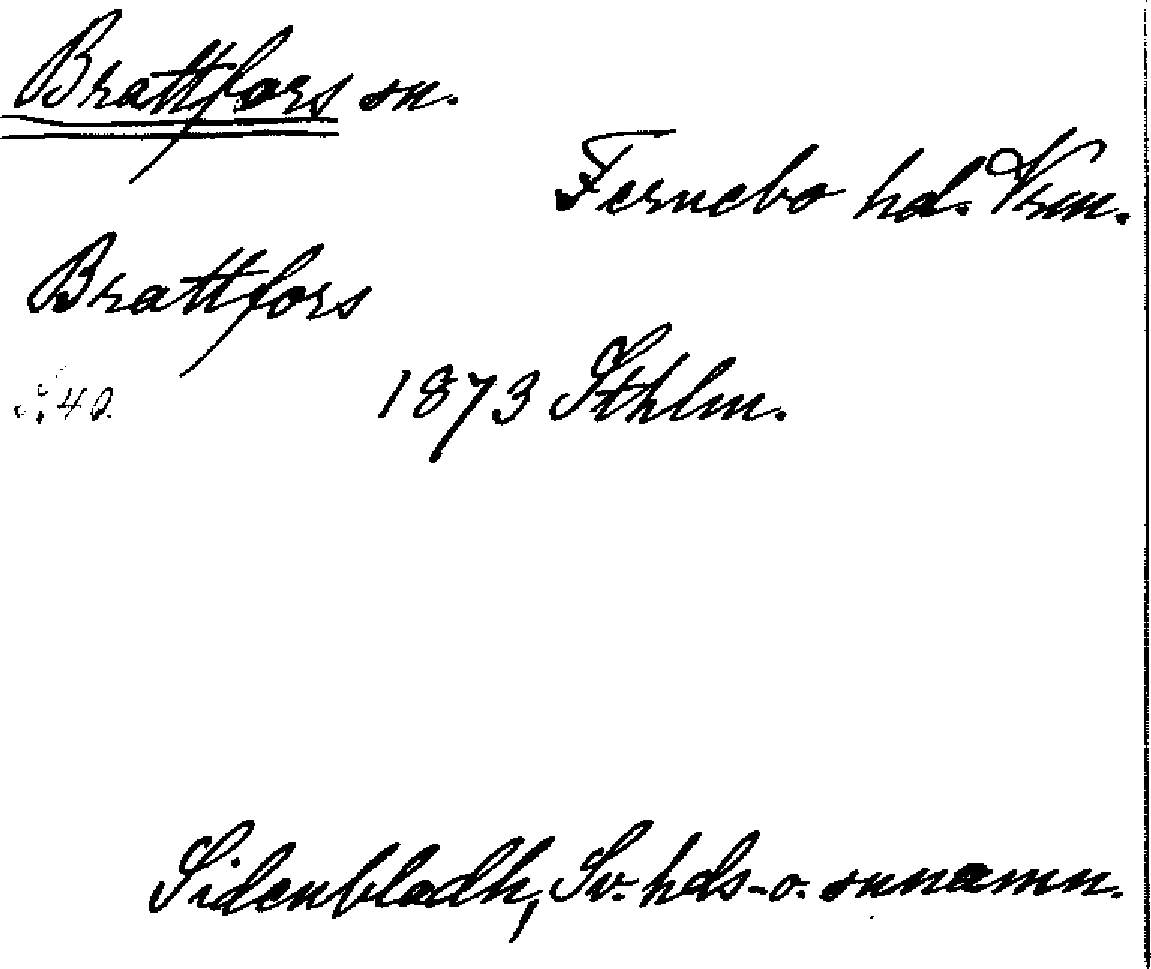 Brattfors sn.
Fernebo hd. Vrm.
Brattfors
S. 40. 1873 Sthlm.
Sidenbladh, Sv. hds- o. snnamn.